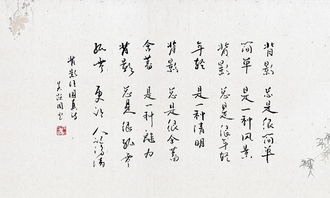 背影 总是很简单
简单 是一种风景
背影 总是很年轻
年轻 是一种清明
背影 总是很含蓄
含蓄 是一种魅力
背影 总是很孤零
孤零 更让人记得清
背影 汪国真诗